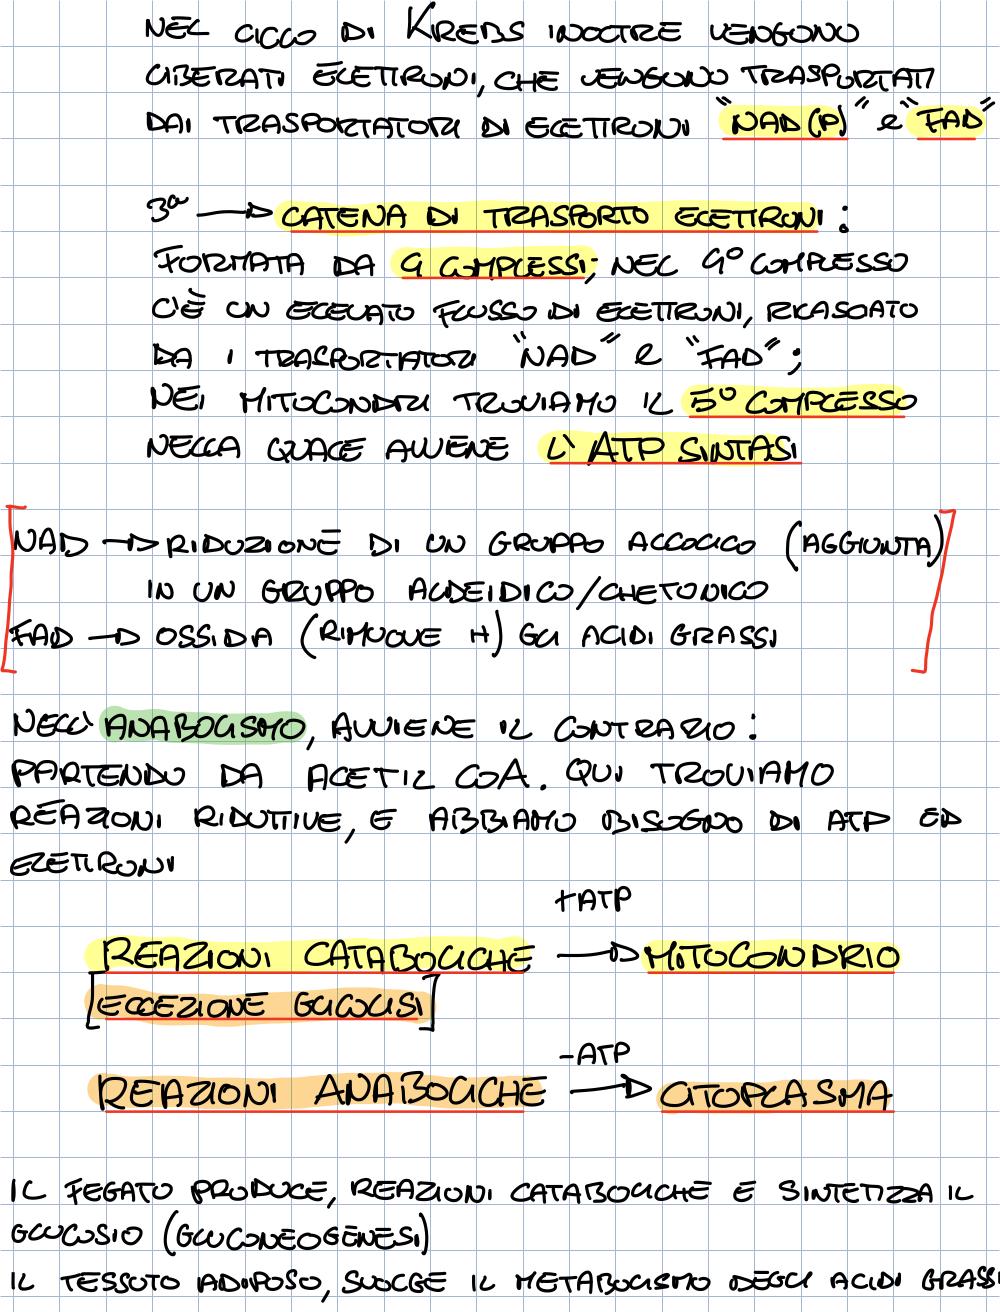 NEL CICLO DI KREBS INOLTRE VENGONO
LIBERATI ELETTRONI, CHE VENGONO TRASPORTATI
DAI TRASPORTATORI DI ELETTRONI "NAD(P)" e "FAD"
3ª → CATENA DI TRASPORTO ELETTRONI:
FORMATA DA 4 COMPLESSI; NEL 4° COMPLESSO
C'È UN ELEVATO FLUSSO DI ELETTRONI, RILASCIATO
DA I TRASPORTATORI "NAD" e "FAD";
NEI MITOCONDRI TROVIAMO IL 5° COMPLESSO
NELLA QUALE AVVIENE L'ATP SINTASI
NAD → RIDUZIONE DI UN GRUPPO ALCOLICO (AGGIUNTA)
IN UN GRUPPO ALDEIDICO/CHETONICO
FAD → OSSIDA (RIMUOVE H) GLI ACIDI GRASSI
NELL'ANABOLISMO, AVVIENE IL CONTRARIO:
PARTENDO DA ACETIL COA. QUI TROVIAMO
REAZIONI RIDUTTIVE, E ABBIAMO BISOGNO DI ATP ED
ELETTRONI
+ATP
REAZIONI CATABOLICHE → MITOCONDRIO
[ECCEZIONE GLICOLISI]
-ATP
REAZIONI ANABOLICHE → CITOPLASMA
IL FEGATO PRODUCE, REAZIONI CATABOLICHE E SINTETIZZA IL
GLUCOSIO (GLUCONEOGENESI)
IL TESSUTO ADIPOSO, SVOLGE IL METABOLISMO DEGLI ACIDI GRASSI